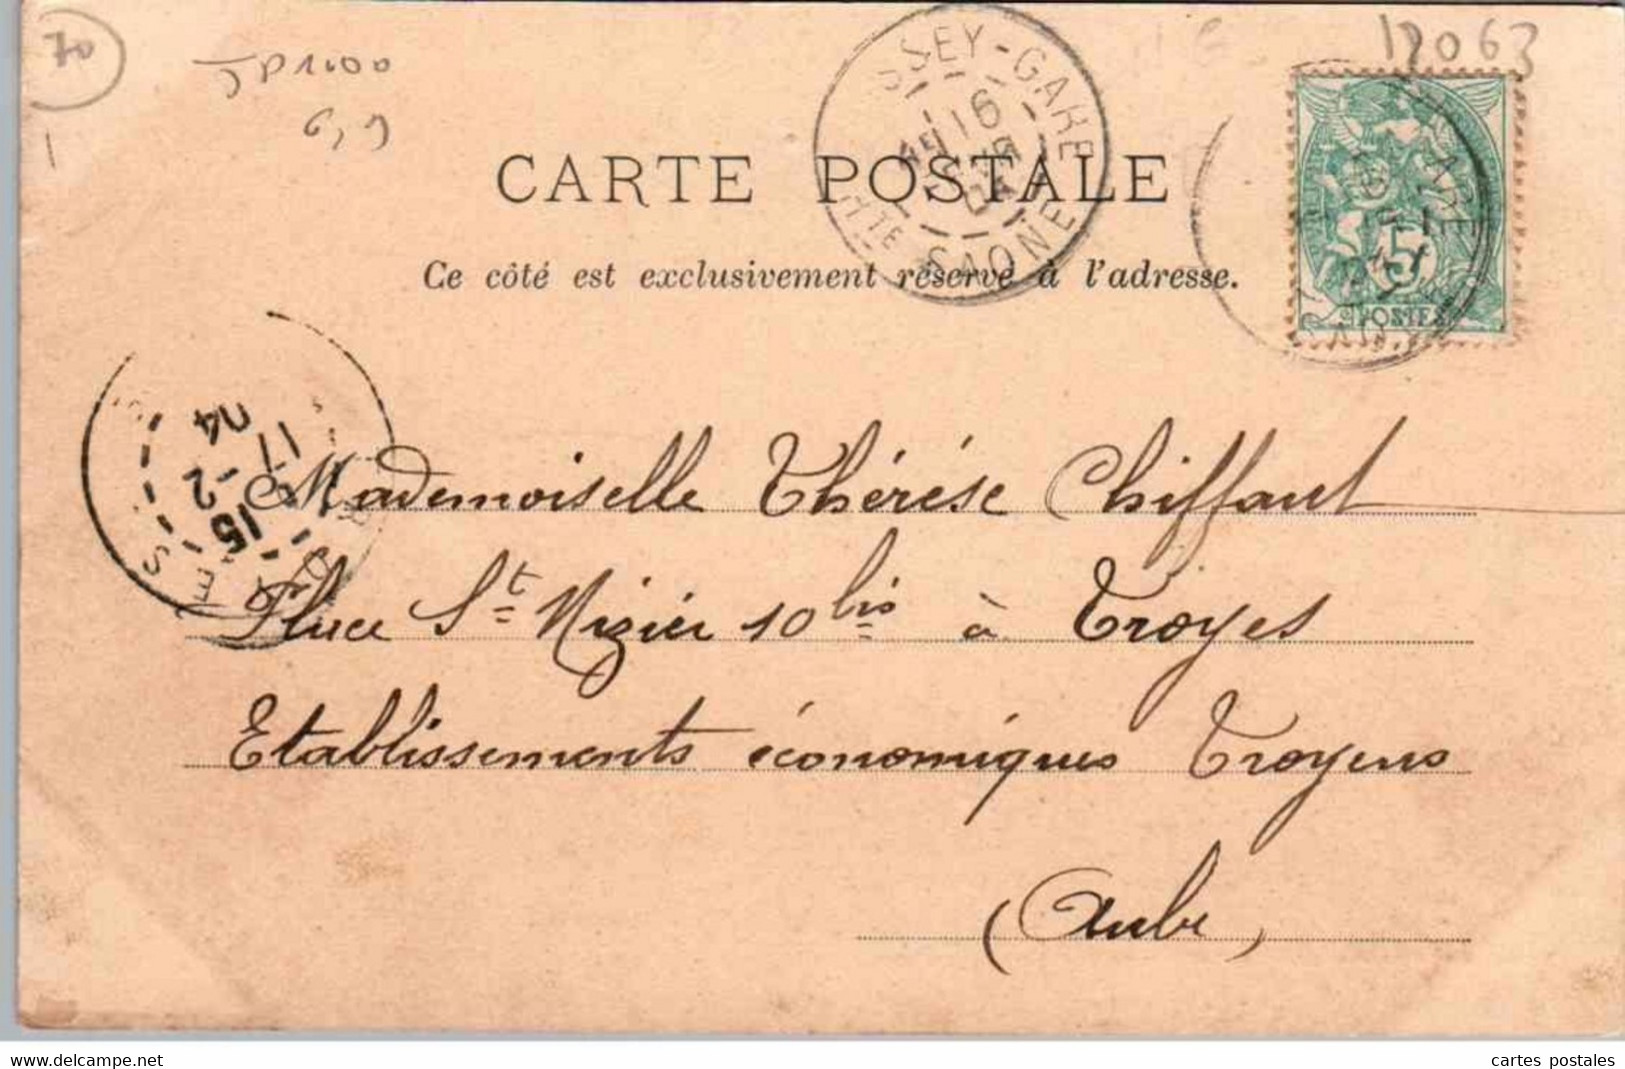 70
JP1000
6,9
12063
USSEY-GARE
16
04
HTE SAONE
5
POSTES
CARTE POSTALE
Ce côté est exclusivement réservé à l'adresse.
15
17-2
04
Mademoiselle Thérése Chiffaut
Place St Nizier 10 bis à Troyes
Etablissements économiques Troyens
(Aube)
www.delcampe.net
cartes postales